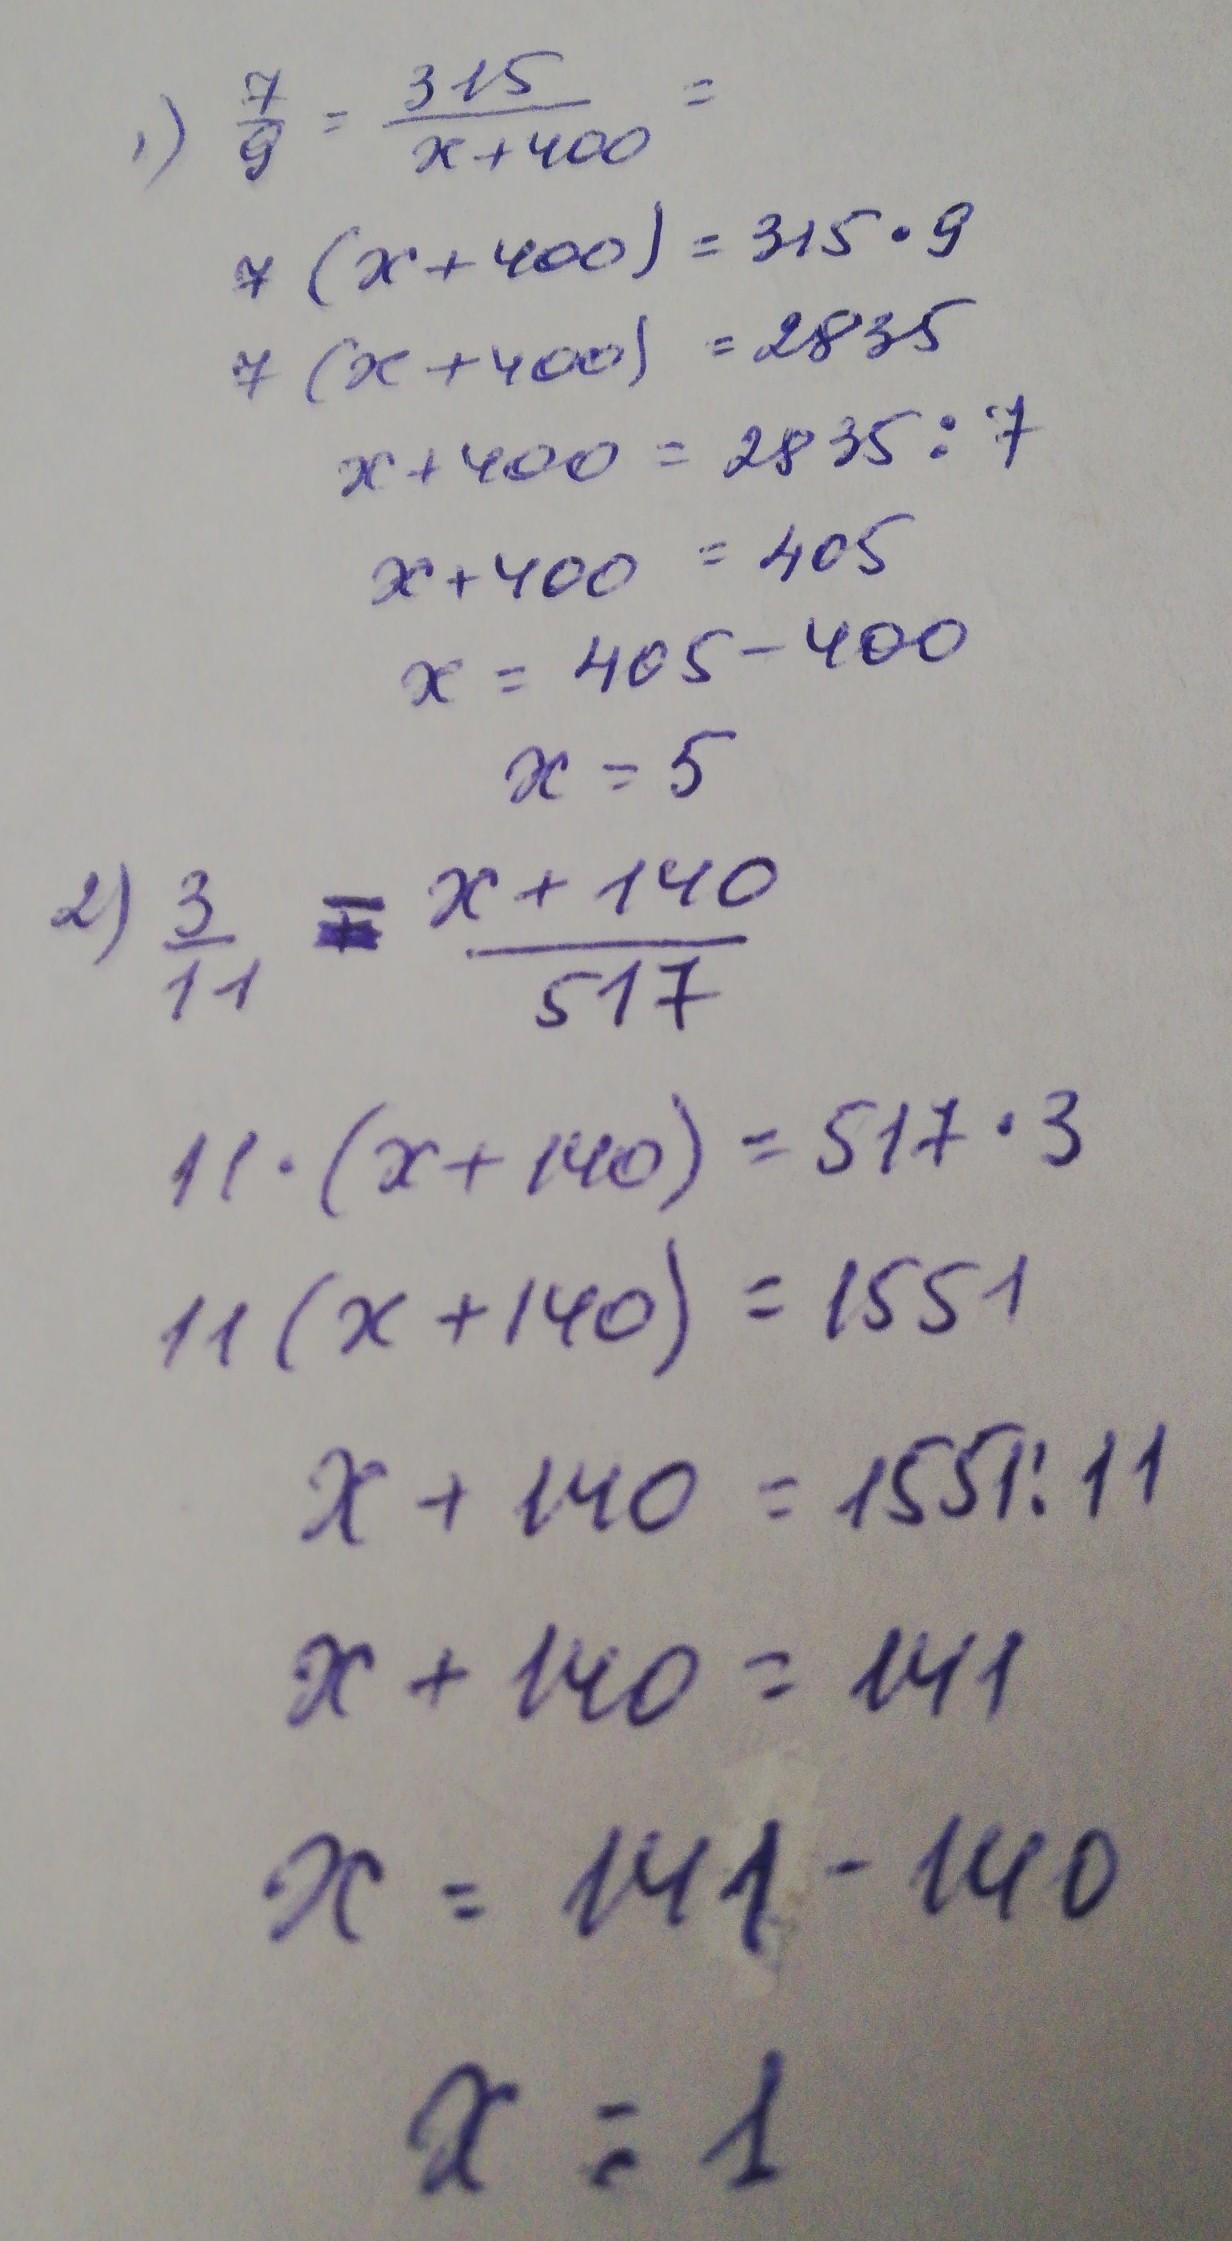 1) 7/9 = 315/(x+400) =
7 (x+400) = 315 · 9
7 (x+400) = 2835
x+400 = 2835 : 7
x+400 = 405
x = 405 - 400
x = 5
2) 3/11 = (x+140)/517
11 · (x+140) = 517 · 3
11 (x+140) = 1551
x + 140 = 1551 : 11
x + 140 = 141
x = 141 - 140
x = 1